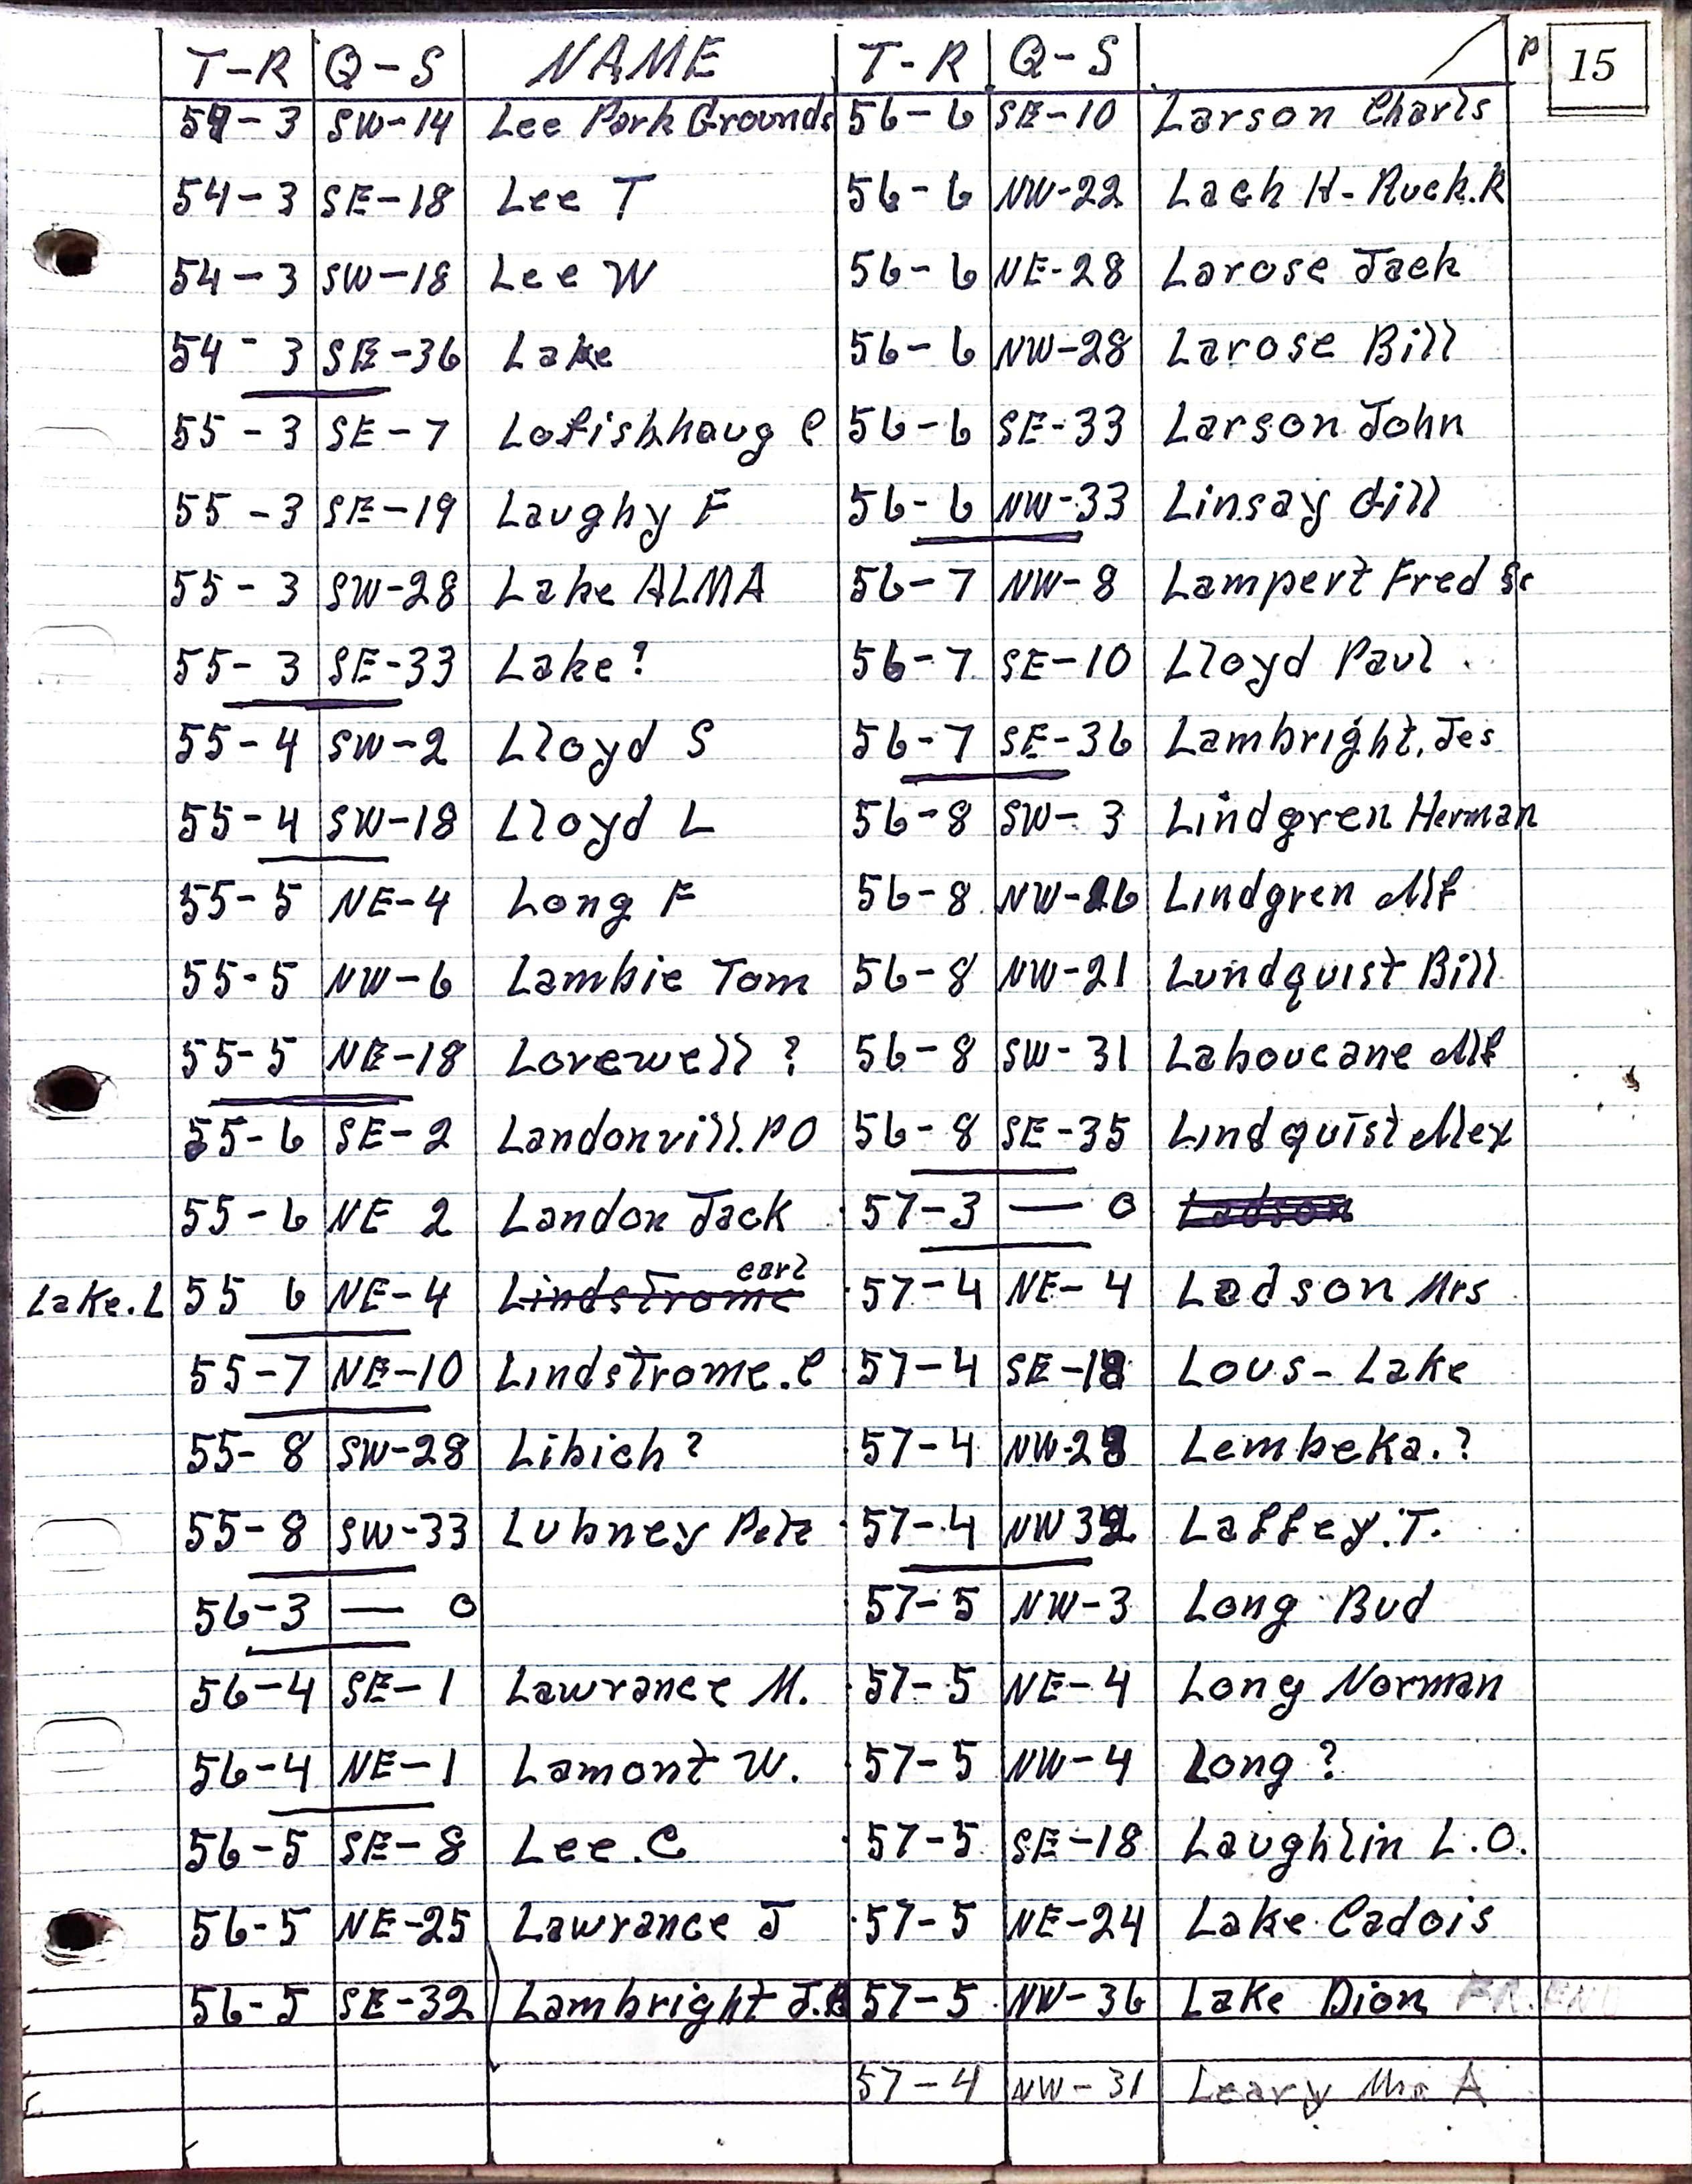 T-R Q-S NAME T-R Q-S P 15
54-3 SW-14 Lee Park Grounds 56-6 SE-10 Larson Charls
54-3 SE-18 Lee T 56-6 NW-22 Lach H-Ruck.R
54-3 SW-18 Lee W 56-6 NE-28 Larose Jack
54-3 SE-36 Lake 56-6 NW-28 Larose Bill
55-3 SE-7 Lofishhaug C 56-6 SE-33 Larson John
55-3 SE-19 Laughy F 56-6 NW-33 Linsay Gill
55-3 SW-28 Lake ALMA 56-7 NW-8 Lampert Fred Sr
55-3 SE-33 Lake? 56-7 SE-10 Lloyd Paul
55-4 SW-2 Lloyd S 56-7 SE-36 Lambright, Jes
55-4 SW-18 Lloyd L 56-8 SW-3 Lindgren Herman
55-5 NE-4 Long F 56-8 NW-26 Lindgren Alf
55-5 NW-6 Lambie Tom 56-8 NW-21 Lundquist Bill
55-5 NE-18 Lovewell? 56-8 SW-31 Laboucane Alf
55-6 SE-2 Landonvill.PO 56-8 SE-35 Lindquist Alex
55-6 NE 2 Landon Jack 57-3 — 0 Ladson
Lake.L 55 6 NE-4 Lindstrome carl 57-4 NE-4 Ladson Mrs
55-7 NE-10 Lindstrome.C 57-4 SE-18 Lous-Lake
55-8 SW-28 Libich? 57-4 NW-28 Lembeka.?
55-8 SW-33 Lubney Pete 57-4 NW 32 Laffey.T.
56-3 — 0 57-5 NW-3 Long Bud
56-4 SE-1 Lawrance M. 57-5 NE-4 Long Norman
56-4 NE-1 Lamont W. 57-5 NW-4 Long?
56-5 SE-8 Lee.C 57-5 SE-18 Laughlin L.O.
56-5 NE-25 Lawrance J 57-5 NE-24 Lake Cadois
56-5 SE-32 Lambright J.B 57-5 NW-36 Lake Dion
57-4 NW-31 Leary Mrs A